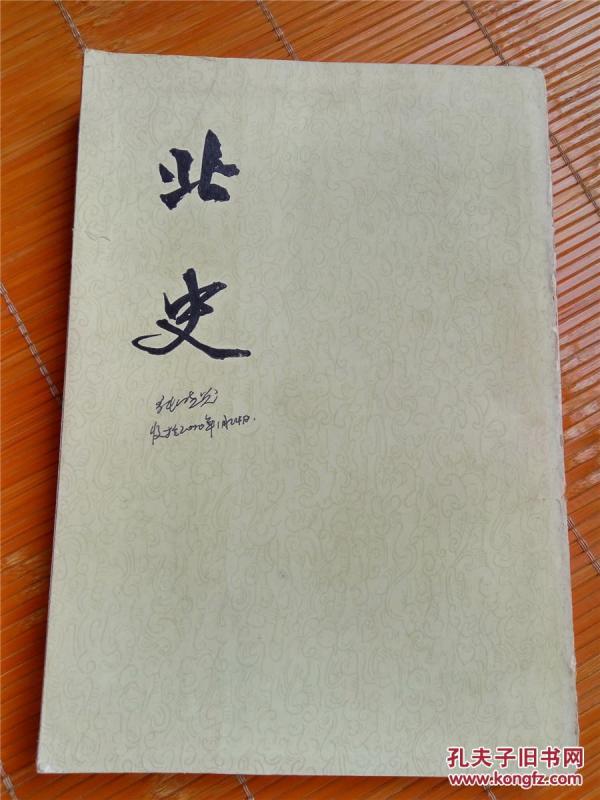 北
史
2010年1月24日.
孔夫子旧书网
www.kongfz.com